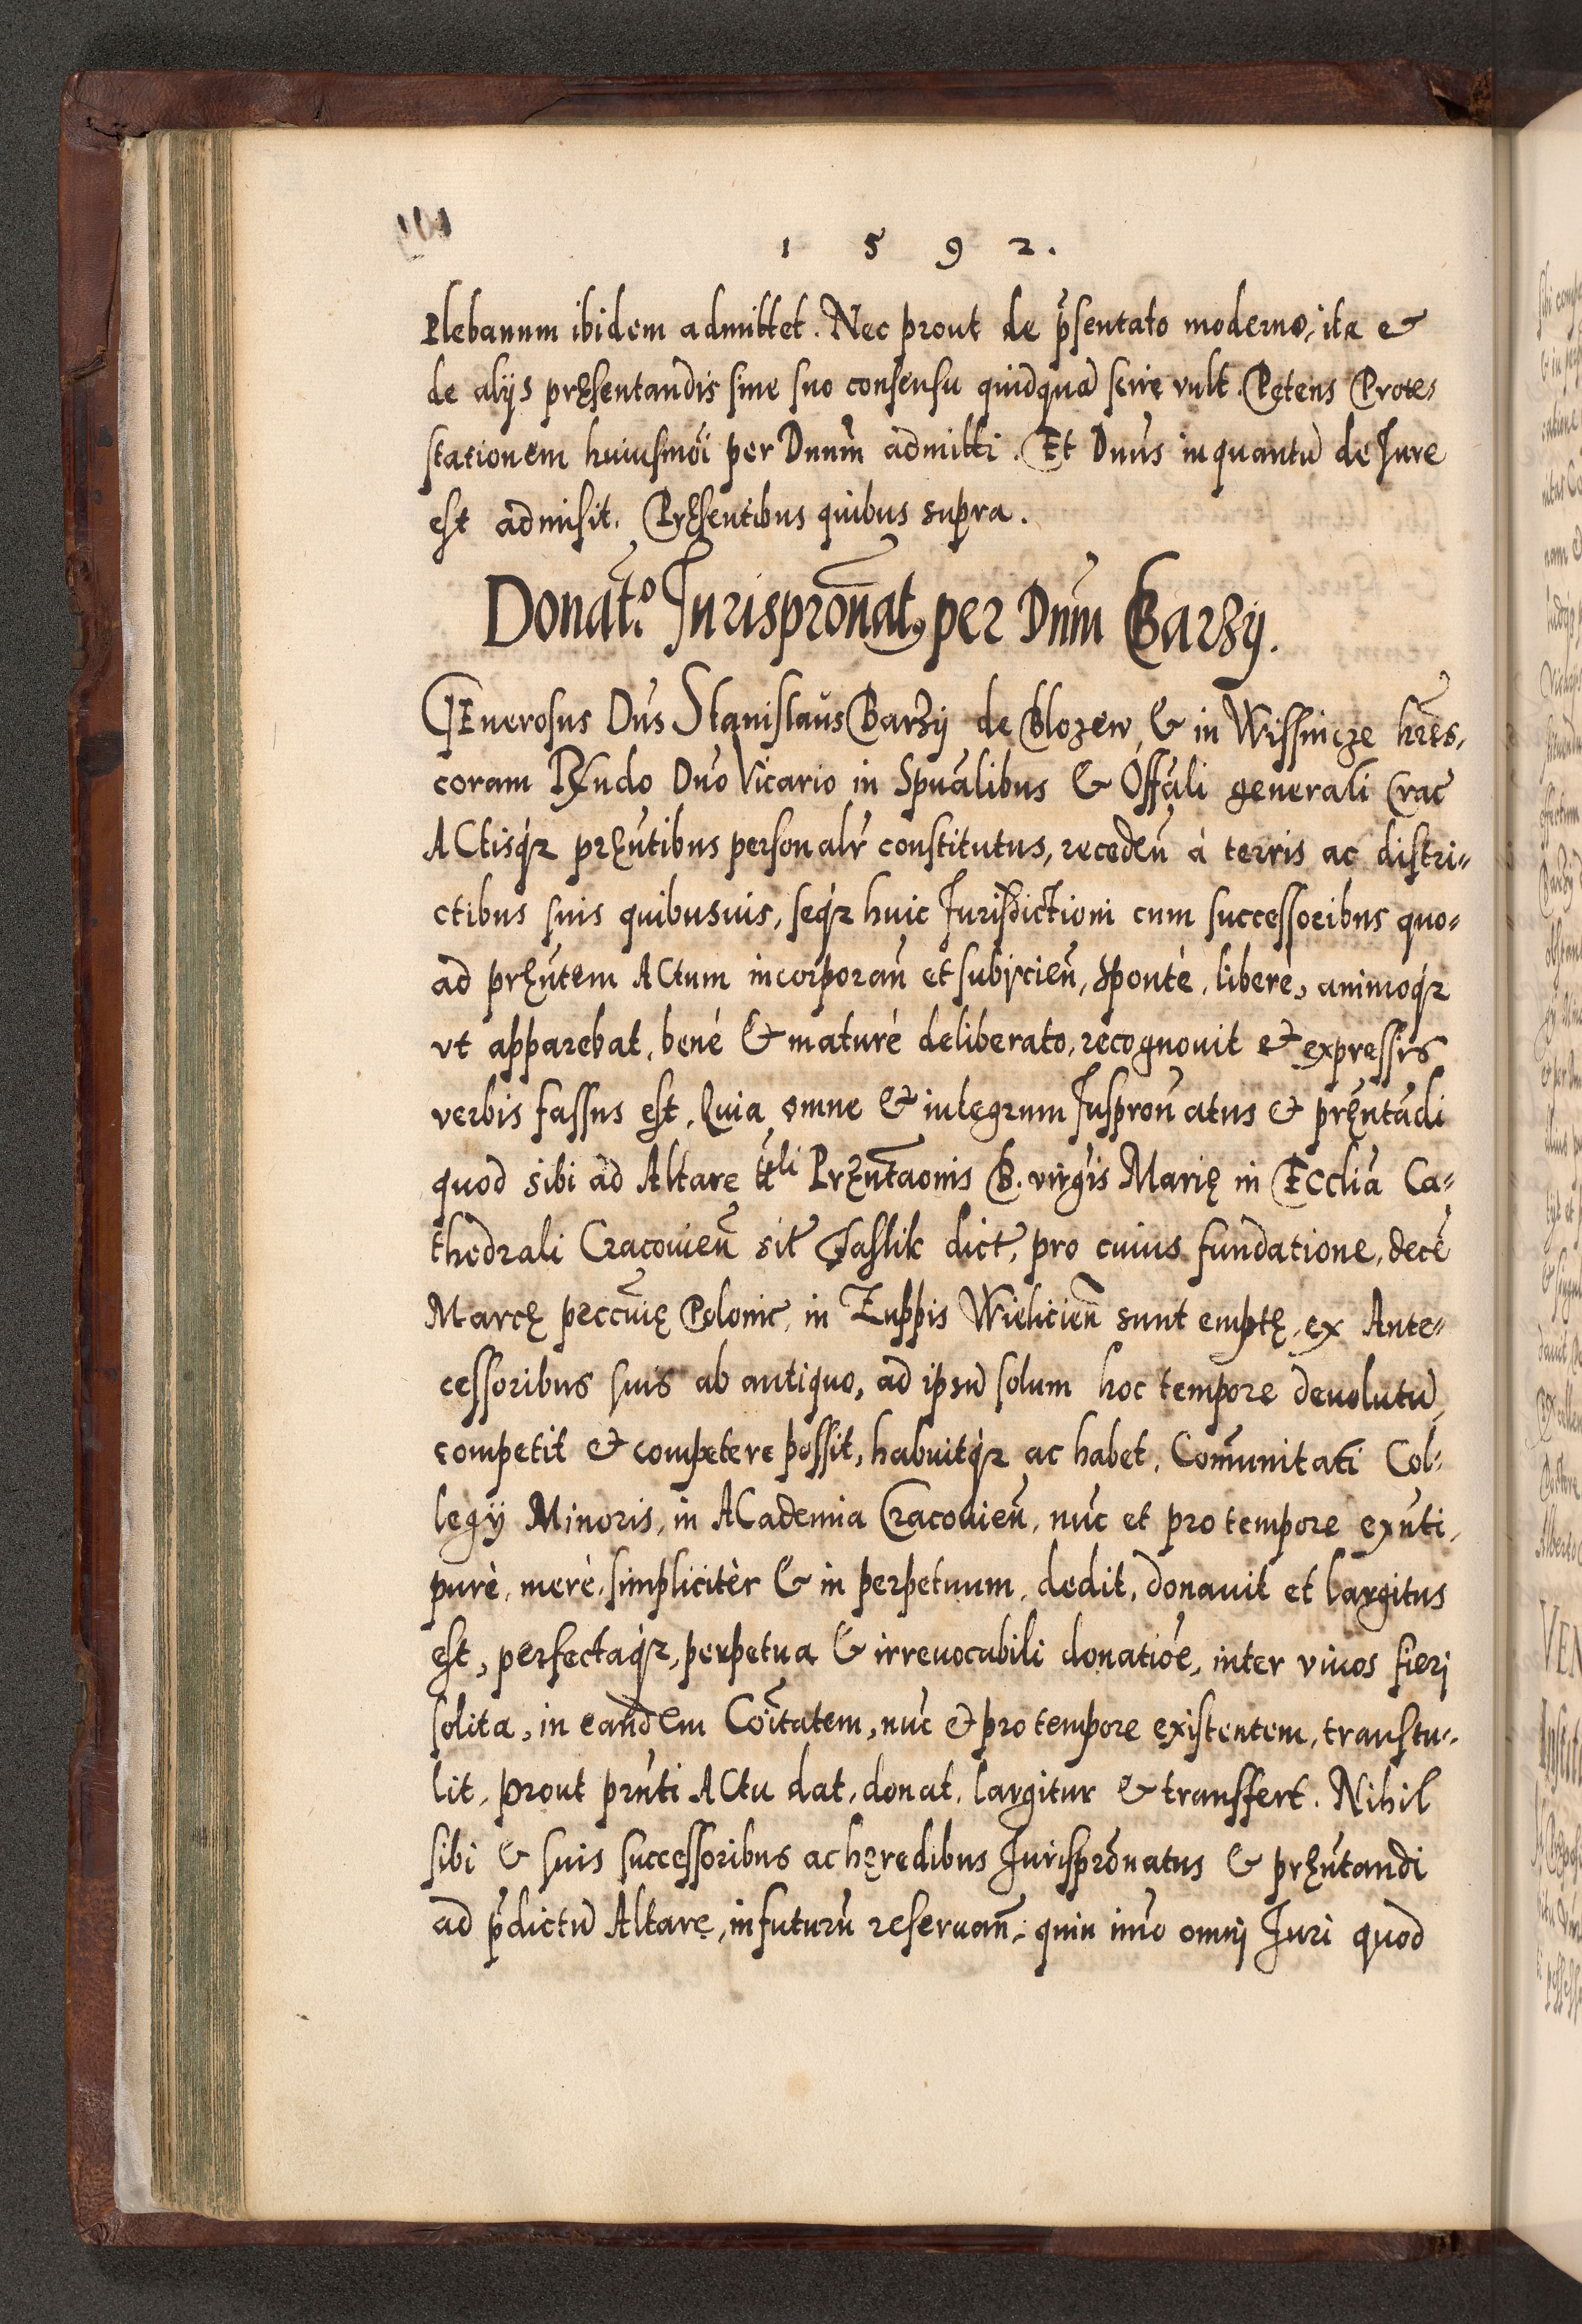 1 5 9 2.
Plebanum ibidem admittet. Nec prout de p̃sentato moderno, ita &
de alijs pręsentandis sine suo consensu quidquã scire vult. Petens Prote-
stationem huiusmõi per Dnũm admitti. Et Dnũs inquantũ de Iure
est admisit. Pręsentibus quibus supra.
Donat.º Jurisprõnat9 per Dnũm Barzij.
GEnerosus Dñs Stanislaũs Barzij de Blozew, & in Wissnicze hæres,
coram Rx̃ndo Dno Vicario in Spũalibus & Offãli generali Crac̃
ACtisq́3 pręñtibus personalr̃ constitutus, recedeñ à terris ac distri-
ctibus suis quibusuis, seq́3 huic Jurisdictioni cum successoribus quo-
ad pręñtem ACtum incorporañ et subijcieñ, spontè, liberè, animoq́3
vt apparebat, benè & maturè deliberato, recognouit & expressis
verbis fassus est, Quia omne & integrum Jusprõnatus & pręñtãdi
quod sibi ad Altare tt̃li Pręñtãonis B. virg̃is Marię in ECcliã Ca-
thedrali Cracouieñ sit̃ Jaslik dict̃, pro cuius fundatione, decẽ
Marcę peccũię Polonic̃, in Zuppis Wielicieñ sunt emptę, ex Ante-
cessoribus suis ab antiquo, ad ipsũ solum hoc tempore deuolutũ,
competit & competere possit, habuitq́3 ac habet, Com̃unitati Col-
legij Minoris, in ACademia Cracouieñ, nũc et pro tempore exñti,
purè, merè, simplicitèr & in perpetuum, dedit, donauit et largitus
est, perfectaq́3, perpetua & irreuocabili donatiõe, inter viuos fieri
solita, in eandem Cõitatem, nũc & pro tempore existentem, transtu-
lit, prout prñti ACtu dat, donat, largitur & transffert. Nihil
sibi & suis successoribus ac hęredibus Jurisprõnatus & pręñtandi
ad p̃dictũ Altare, in futurũ reseruañ, quin imò omnj Juri quod